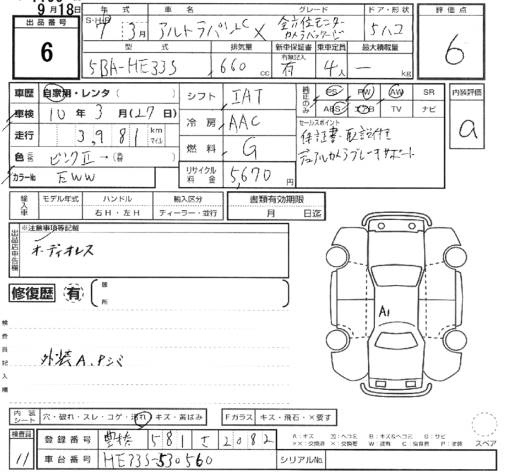 9月18日
出品番号 6
年式 S・H・R 7年3月
車名 アルトラパンLC X
グレード 全方位モニター カメラパッケージ
ドア・形状 5ハコ
評価点 6
型式 5BA-HE33S
排気量 660 cc
新車保証書 有無記入 有
乗車定員 4人
最大積載量 — kg
車歴 自家用・レンタ( )
車検 10年3月(27日)
走行 3,981 km マイル
色 ピンクⅡ →( )
カラーNo. EWW
シフト IAT
冷房 AAC
燃料 G
リサイクル料金 5,670円
純正のみ PS PW AW SR
ABS エアB TV ナビ
セールスポイント
保証書・取説付き
デュアルカメラブレーキサポート
内装評価 a
輸入車 モデル年式 年
ハンドル 右H・左H
輸入区分 ディーラー・並行
書類有効期限 月 日迄
出品店申告欄 ※注意事項等記載
オーディオレス
修復歴 有 箇所
検査員記入欄
外装A、Pシミ
A1
内装シート 穴・破れ・スレ・コゲ・汚れ・キズ・黄ばみ
Fガラス キズ・飛石・×要す
スペア
検査員 11
登録番号 豊橋 581 さ 2082
車台番号 HE33S-530560
シリアルNo.